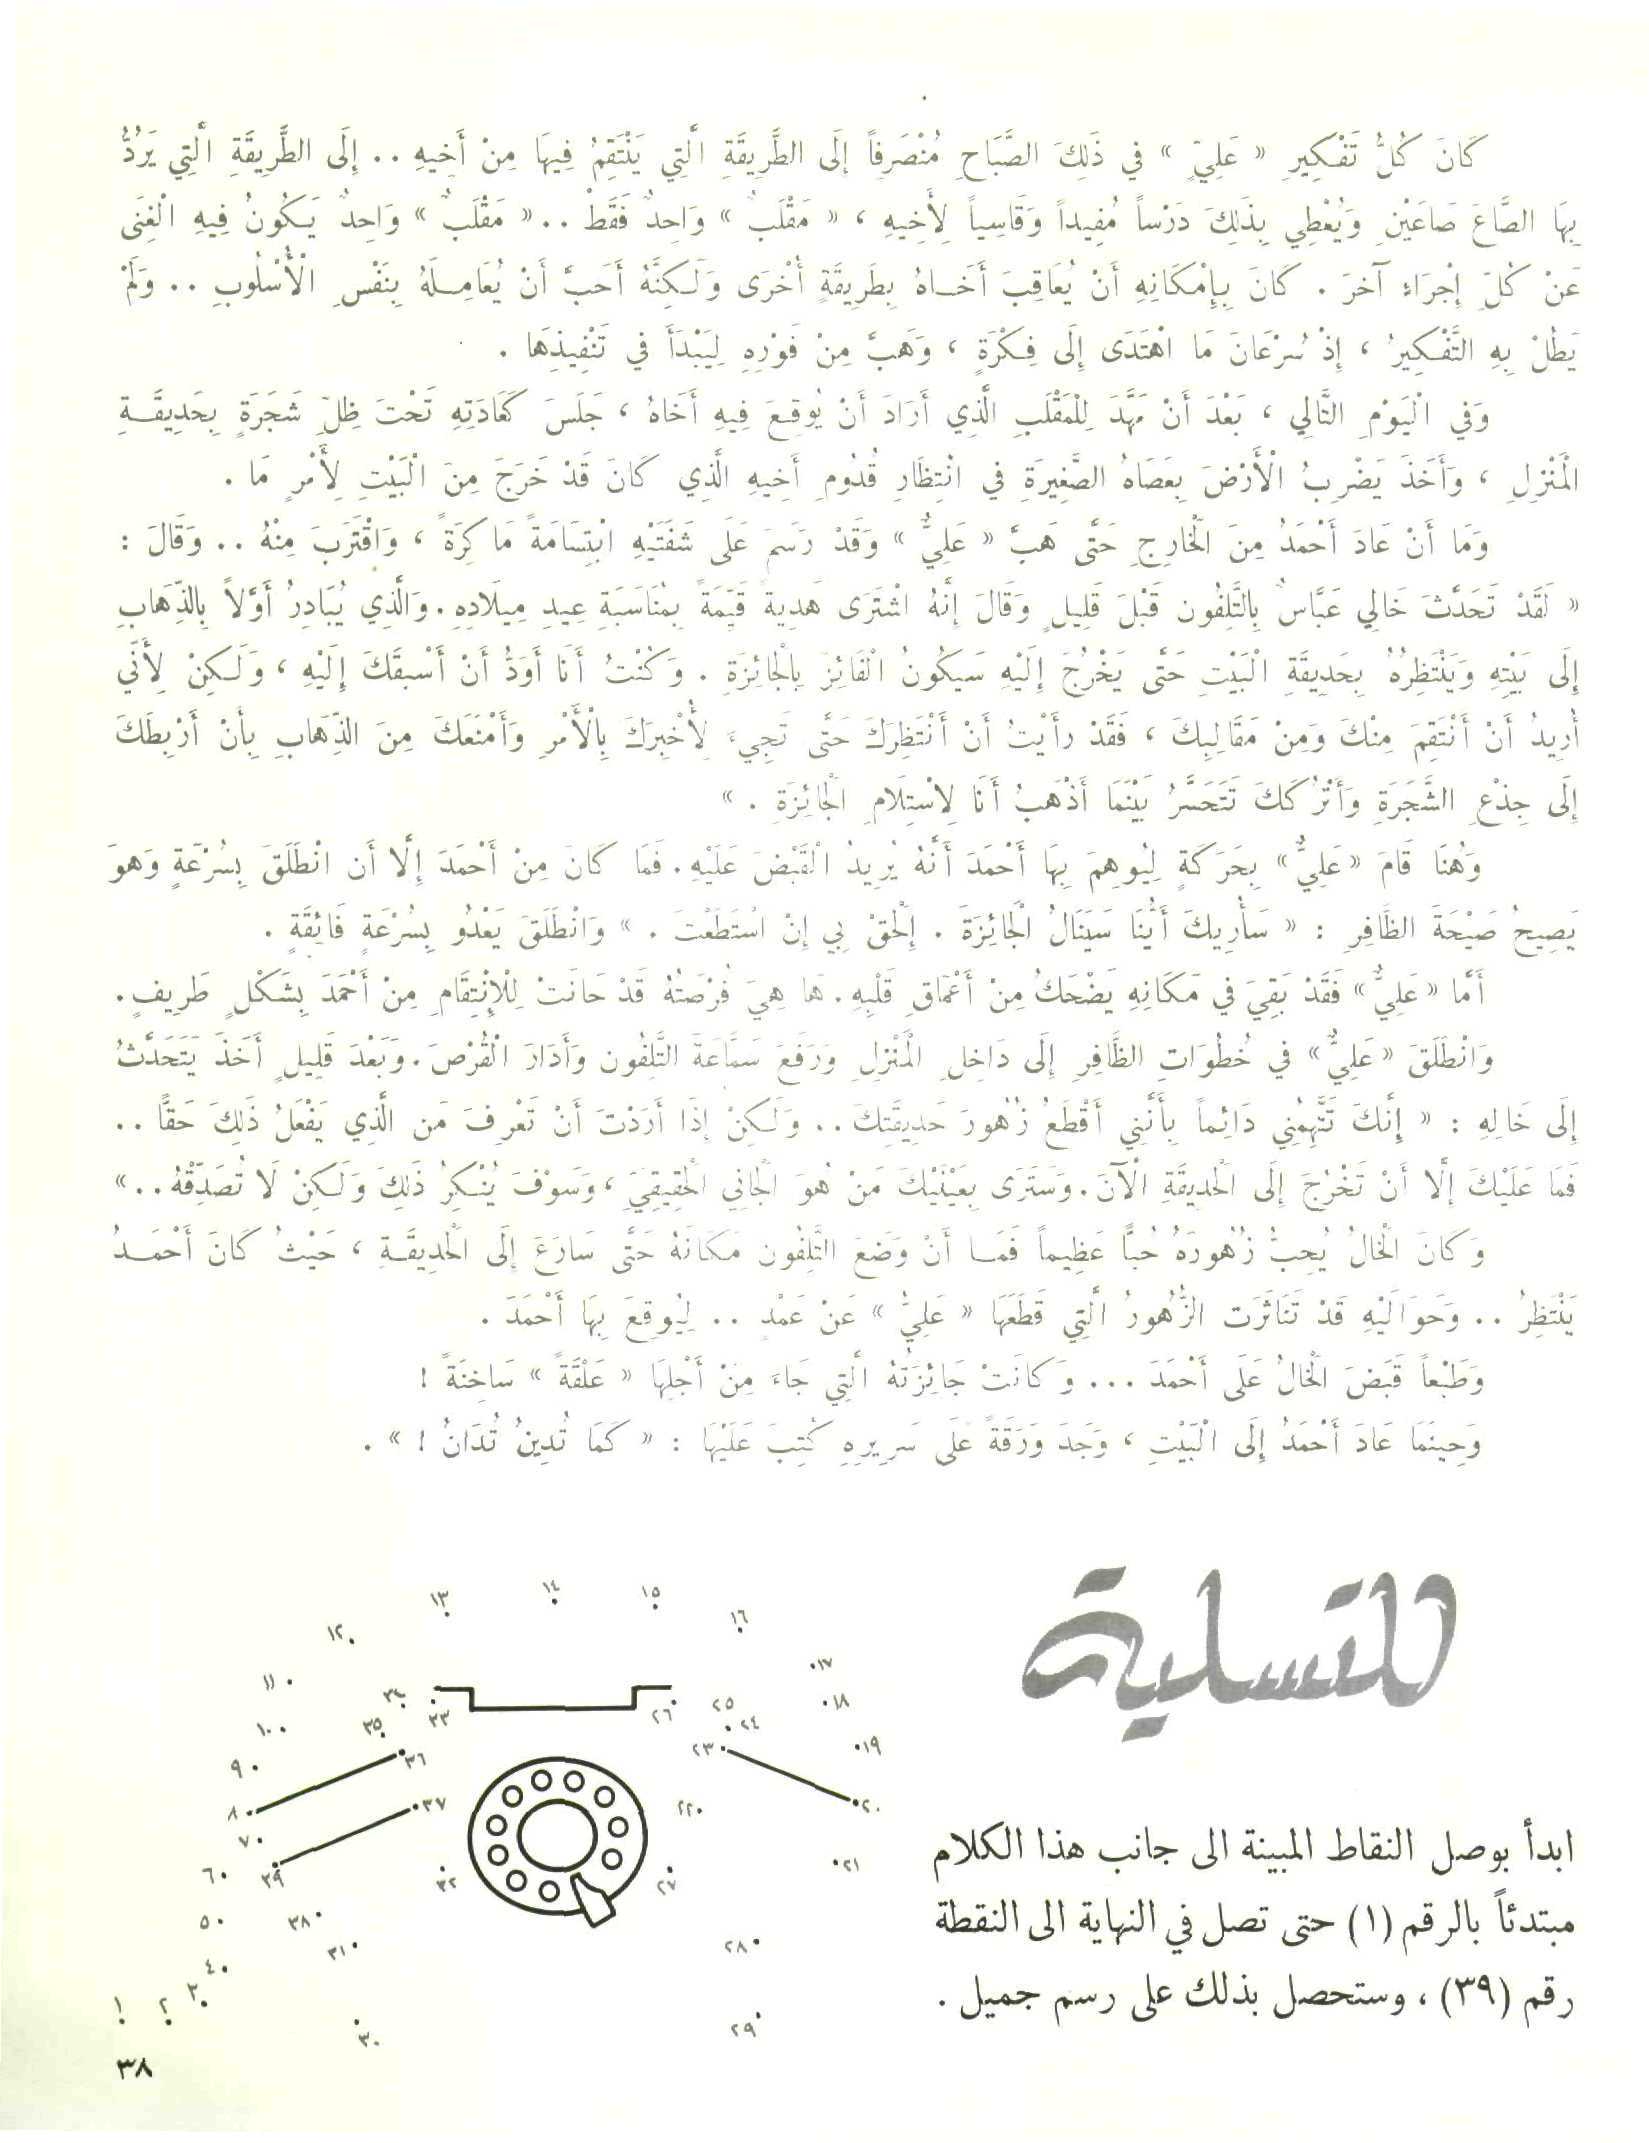 كَانَ كُلُّ تَفْكِيرِ « عَلِيٍّ » فِي ذَلِكَ الصَّبَاحِ مُنْصَرِفاً إِلَى الطَّرِيقَةِ الَّتِي يَنْتَقِمُ فِيهَا مِنْ أَخِيهِ .. إِلَى الطَّرِيقَةِ الَّتِي يَرُدُّ
بِهَا الصَّاعَ صَاعَيْنِ وَيُعْطِي بِذَلِكَ دَرْساً مُفِيداً وَقَاسِياً لِأَخِيهِ ، « مَقْلَبٌ » وَاحِدٌ فَقَطْ .. « مَقْلَبٌ » وَاحِدٌ يَكُونُ فِيهِ الْغِنَى
عَنْ كُلِّ إِجْرَاءٍ آخَرَ . كَانَ بِإِمْكَانِهِ أَنْ يُعَاقِبَ أَخَاهُ بِطَرِيقَةٍ أُخْرَى وَلَكِنَّهُ أَحَبَّ أَنْ يُعَامِلَهُ بِنَفْسِ الْأُسْلُوبِ .. وَلَمْ
يَطُلْ بِهِ التَّفْكِيرُ ، إِذْ سُرْعَانَ مَا اهْتَدَى إِلَى فِكْرَةٍ ، وَهَبَّ مِنْ فَوْرِهِ لِيَبْدَأَ فِي تَنْفِيذِهَا .
وَفِي الْيَوْمِ التَّالِي ، بَعْدَ أَنْ مَهَّدَ لِلْمَقْلَبِ الَّذِي أَرَادَ أَنْ يُوقِعَ فِيهِ أَخَاهُ ، جَلَسَ كَعَادَتِهِ تَحْتَ ظِلِّ شَجَرَةٍ بِحَدِيقَةِ
الْمَنْزِلِ ، وَأَخَذَ يَضْرِبُ الْأَرْضَ بِعَصَاهُ الصَّغِيرَةِ فِي انْتِظَارِ قُدُومِ أَخِيهِ الَّذِي كَانَ قَدْ خَرَجَ مِنَ الْبَيْتِ لِأَمْرٍ مَا .
وَمَا أَنْ عَادَ أَحْمَدُ مِنَ الْخَارِجِ حَتَّى هَبَّ « عَلِيٌّ » وَقَدْ رَسَمَ عَلَى شَفَتَيْهِ ابْتِسَامَةً مَاكِرَةً ، وَاقْتَرَبَ مِنْهُ .. وَقَالَ :
« لَقَدْ تَحَدَّثَ خَالِي عَبَّاسٌ بِالتَّلِفُون قَبْلَ قَلِيلٍ وَقَالَ إِنَّهُ اشْتَرَى هَدِيةً قَيِّمَةً بِمُنَاسَبَةِ عِيدِ مِيلَادِهِ . وَالَّذِي يُبَادِرُ أَوَّلاً بِالذَّهَابِ
إِلَى بَيْتِهِ وَيَنْتَظِرُهُ بِحَدِيقَةِ الْبَيْتِ حَتَّى يَخْرُجَ إِلَيْهِ سَيَكُونُ الْفَائِزَ بِالْجَائِزَةِ . وَكُنْتُ أَنَا أَوَدُّ أَنْ أَسْبِقَكَ إِلَيْهِ ، وَلَكِنْ لِأَنِّي
أُرِيدُ أَنْ أَنْتَقِمَ مِنْكَ وَمِنْ مَقَالِبِكَ ، فَقَدْ رَأَيْتُ أَنْ أَنْتَظِرَكَ حَتَّى تَجِيءَ لِأُخْبِرَكَ بِالْأَمْرِ وَأَمْنَعَكَ مِنَ الذَّهَابِ بِأَنْ أَرْبِطَكَ
إِلَى جِذْعِ الشَّجَرَةِ وَأَتْرُكَكَ تَتَحَسَّرُ بَيْنَمَا أَذْهَبُ أَنَا لِاسْتِلَامِ الْجَائِزَةِ . »
وَهُنَا قَامَ « عَلِيٌّ » بِحَرَكَةٍ لِيُوهِمَ بِهَا أَحْمَدَ أَنَّهُ يُرِيدُ الْقَبْضَ عَلَيْهِ . فَمَا كَانَ مِنْ أَحْمَدَ إِلَّا أَن انْطَلَقَ بِسُرْعَةٍ وَهوَ
يَصِيحُ صَيْحَةَ الظَّافِرِ : « سَأُرِيكَ أَيُّنَا سَيَنَالُ الْجَائِزَةَ . إِلْحَقْ بِي إِنْ اسْتَطَعْتَ . » وَانْطَلَقَ يَعْدُو بِسُرْعَةٍ فَائِقَةٍ .
أَمَّا « عَلِيٌّ » فَقَدْ بَقِيَ فِي مَكَانِهِ يَضْحَكُ مِنْ أَعْمَاقِ قَلْبِهِ . هَا هِيَ فُرْصَتُهُ قَدْ حَانَتْ لِلْإِنْتِقَامِ مِنْ أَحْمَدَ بِشَكْلٍ طَرِيفٍ .
وَانْطَلَقَ « عَلِيٌّ » فِي خُطُوَاتِ الظَّافِرِ إِلَى دَاخِلِ الْمَنْزِلِ وَرَفَعَ سَمَّاعَةَ التَّلِفُون وَأَدَارَ الْقُرْصَ . وَبَعْدَ قَلِيلٍ أَخَذَ يَتَحَدَّثُ
إِلَى خَالِهِ : « إِنَّكَ تَتَّهِمُنِي دَائِماً بِأَنَّنِي أَقْطَعُ زُهُورَ حَدِيقَتِكَ .. وَلَكِنْ إِذَا أَرَدْتَ أَنْ تَعْرِفَ مَن الَّذِي يَفْعَلُ ذَلِكَ حَقًّا ..
فَمَا عَلَيْكَ إِلَّا أَنْ تَخْرُجَ إِلَى الْحَدِيقَةِ الْآنَ . وَسَتَرَى بِعَيْنَيْكَ مَنْ هُوَ الْجَانِي الْحَقِيقِيّ ، وَسَوْفَ يُنْكِرُ ذَلِكَ وَلَكِنْ لَا تُصَدِّقْهُ .. »
وَكَانَ الْخَالُ يُحِبُّ زُهُورَهُ حُبًّا عَظِيماً فَمَا أَنْ وَضَعَ التَّلِفُون مَكَانَهُ حَتَّى سَارَعَ إِلَى الْحَدِيقَةِ ، حَيْثُ كَانَ أَحْمَدُ
يَنْتَظِرُ .. وَحَوَالَيْهِ قَدْ تَنَاثَرَت الزُّهُورُ الَّتِي قَطَعَهَا « عَلِيٌّ » عَنْ عَمْدٍ .. لِيُوقِعَ بِهَا أَحْمَدَ .
وَطَبْعاً قَبَضَ الْخَالُ عَلَى أَحْمَدَ ... وَكَانَتْ جَائِزَتُهُ الَّتِي جَاءَ مِنْ أَجْلِهَا « عَلْقَةً » سَاخِنَةً !
وَحِينَمَا عَادَ أَحْمَدُ إِلَى الْبَيْتِ ، وَجَدَ وَرَقَةً عَلَى سَرِيرِهِ كُتِبَ عَلَيْهَا : « كَمَا تُدِينُ تُدَانُ ! » .
للتسلية
ابدأ بوصل النقاط المبينة الى جانب هذا الكلام
مبتدئاً بالرقم (١) حتى تصل في النهاية الى النقطة
رقم (٣٩) ، وستحصل بذلك على رسم جميل .
١٣ ١٤ ١٥ ١٦
١٢ ١٧
١١ ٣٤ ٣٣ ٢٦ ٢٥ ١٨
١٠ ٣٥ ٢٤
٩ ٣٦ ٢٣ ١٩
٨ ٣٧ ٢٢ ٢٠
٧
٦ ٣٩ ٣٢ ٢٧ ٢١
٥ ٣٨
٤ ٣١ ٢٨
١ ٢ ٣
٣٠ ٢٩
٣٨